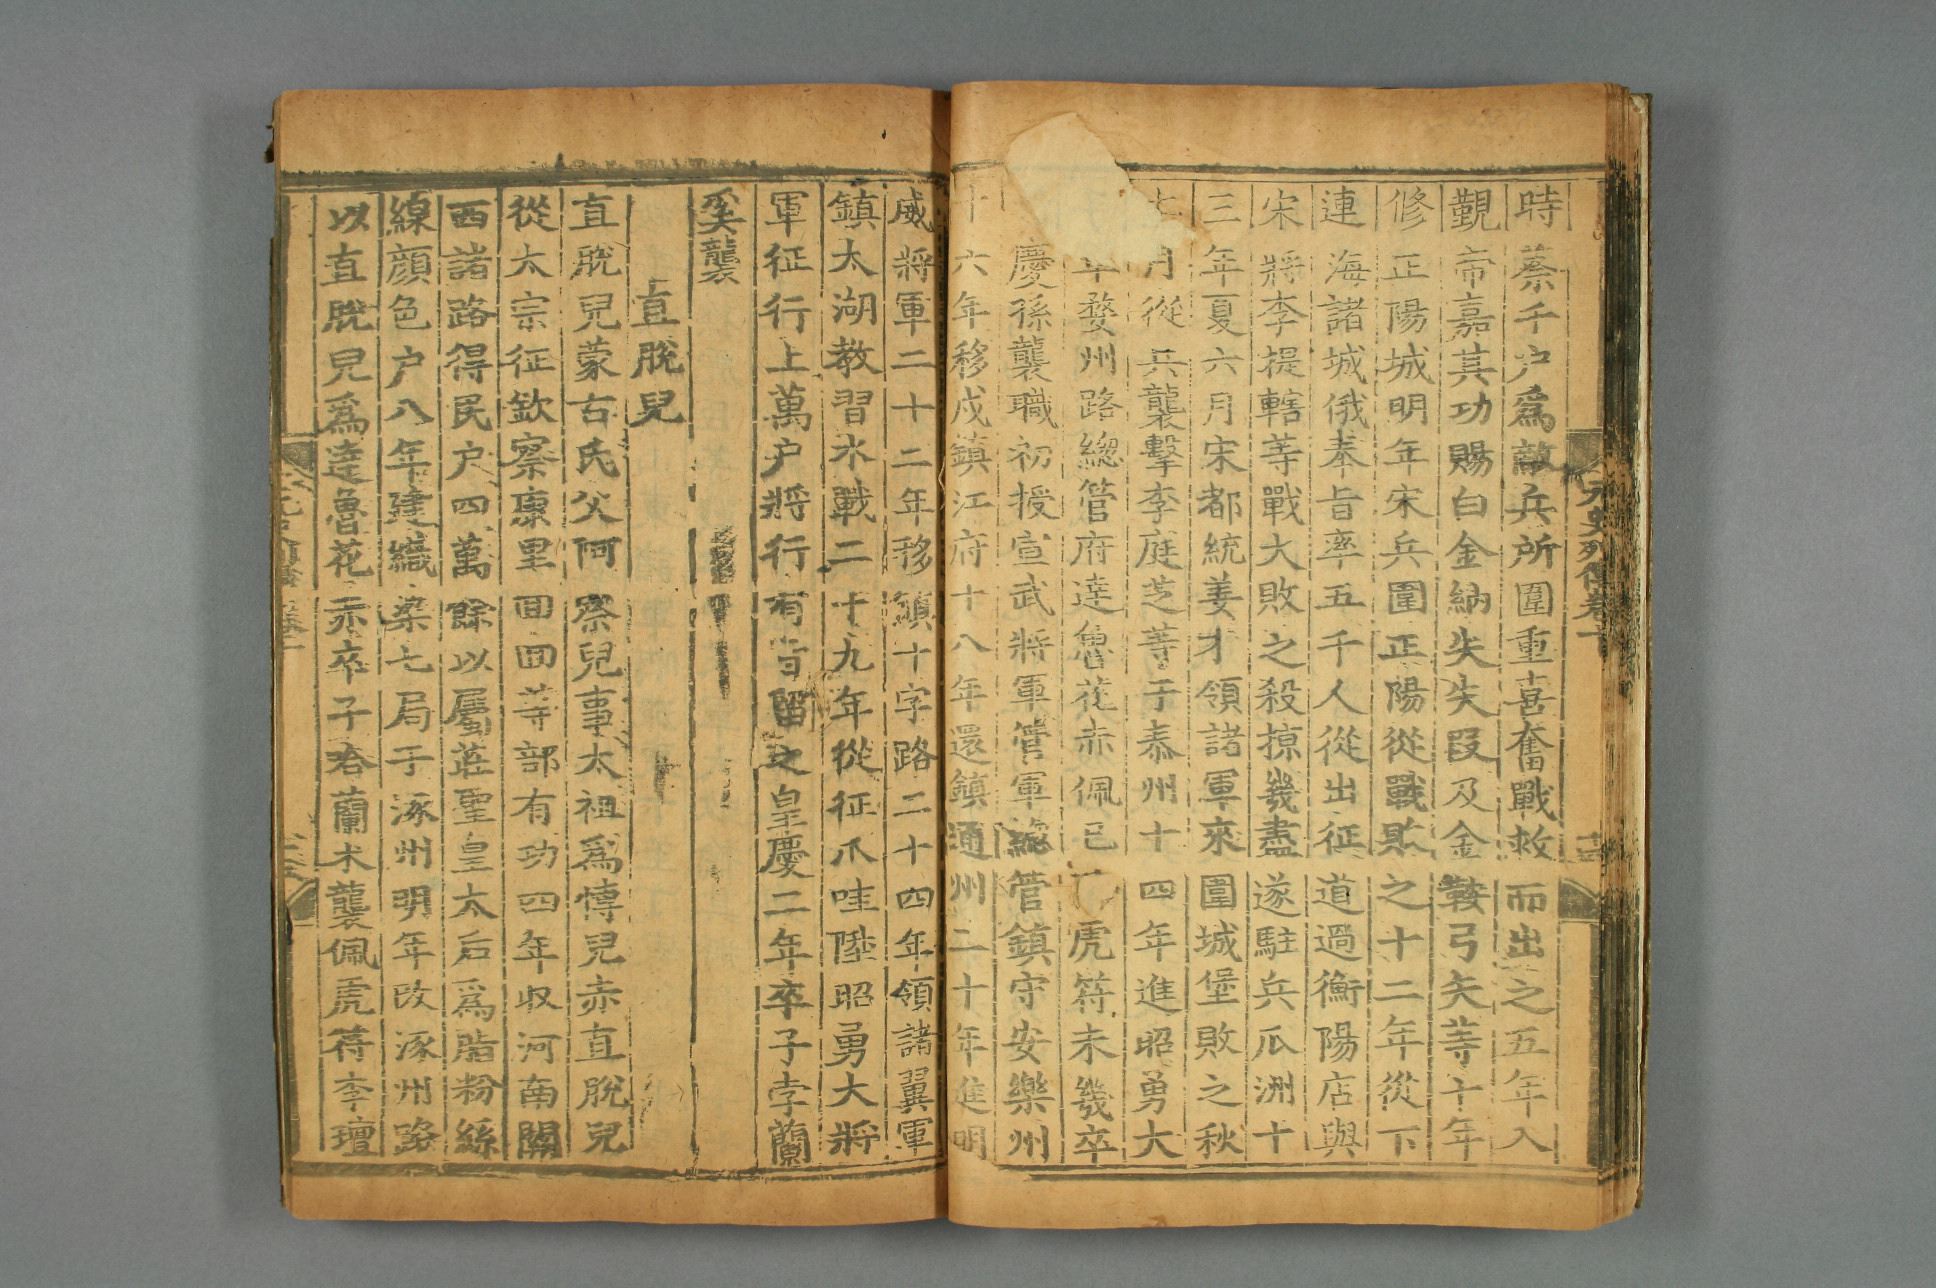 元史列傳卷十
時蔡千户爲敵兵所圍重喜奮戰救而出之五年入
覲帝嘉其功賜白金納失失段及金鞍弓矢等十年
修正陽城明年宋兵圍正陽從戰敗之十二年從下
連海諸城俄奉旨率五千人從出征道過衡陽店與
宋將李提轄等戰大敗之殺掠幾盡遂駐兵瓜洲十
三年夏六月宋都統姜才領諸軍來圍城堡敗之秋
七月從兵襲擊李庭芝等于泰州十四年進昭勇大
年婺州路總管府達魯花赤佩已虎符未幾卒
慶孫襲職初授宣武將軍管軍總管鎮守安樂州
十六年移戍鎮江府十八年還鎮通州二十年進明
威將軍二十二年移鎮十字路二十四年領諸翼軍
鎮太湖教習水戰二十九年從征爪哇陞昭勇大將
軍征行上萬户將行有旨留之皇慶二年卒子孛蘭
奚襲
直脫兒
直脫兒蒙古氏父阿察兒事太祖爲博兒赤直脫兒
從太宗征欽察康里回回等部有功四年收河南關
西諸路得民户四萬餘以屬莊聖皇太后爲脂粉絲
線顔色户八年建織染七局于涿州明年改涿州路
以直脫兒爲達魯花赤卒子哈蘭朮襲佩虎符李璮